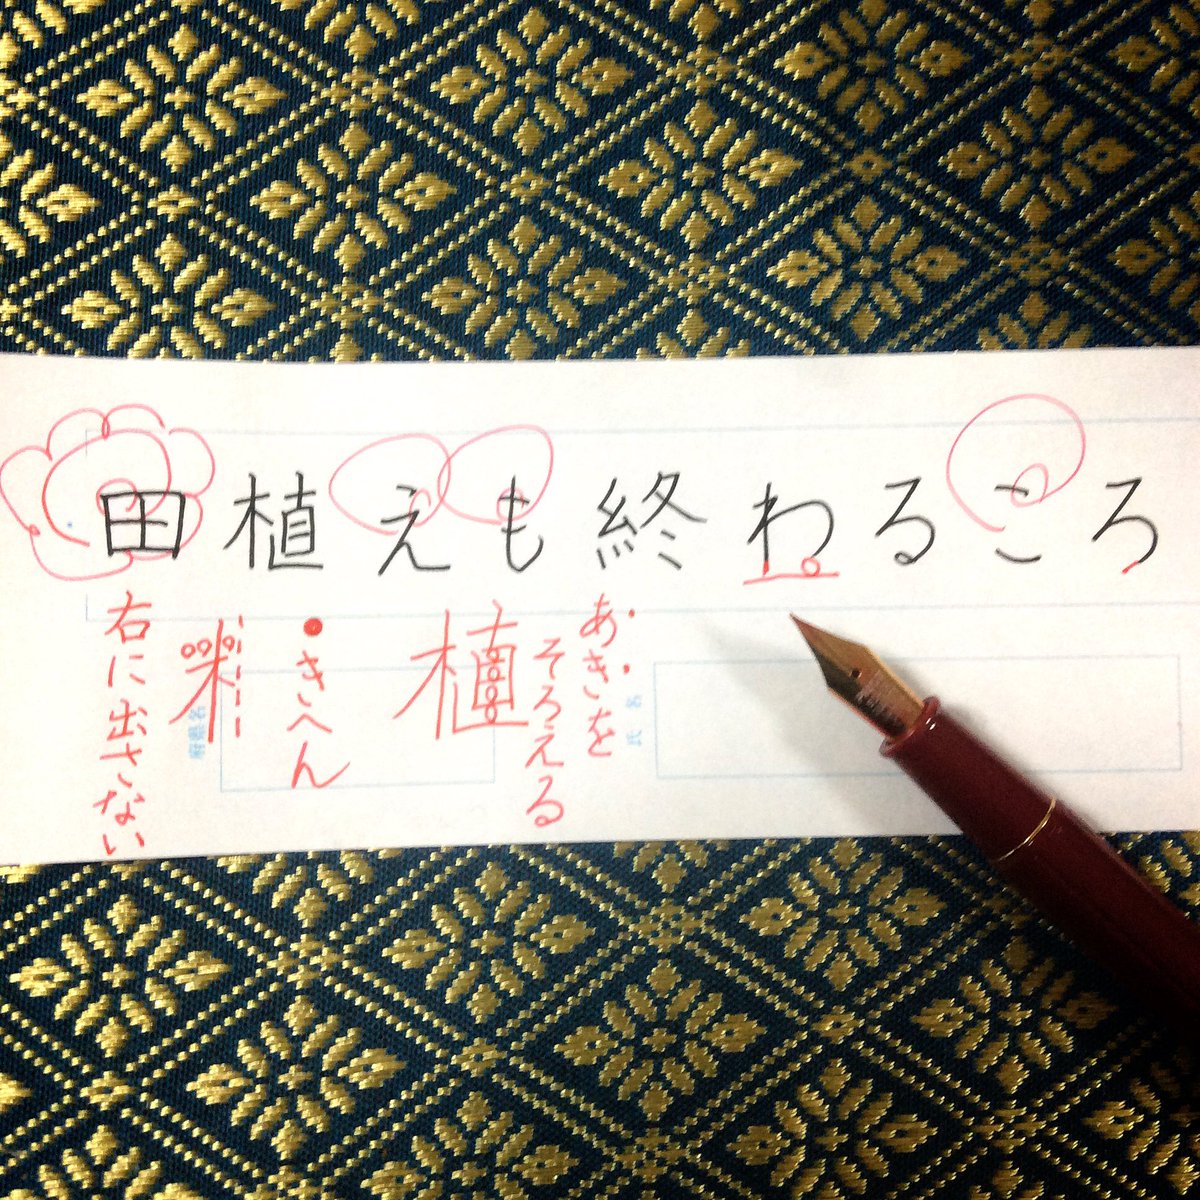 田植えも終わるころ
右に出さない
木
きへん
植
あきを
そろえる
府県名
氏名